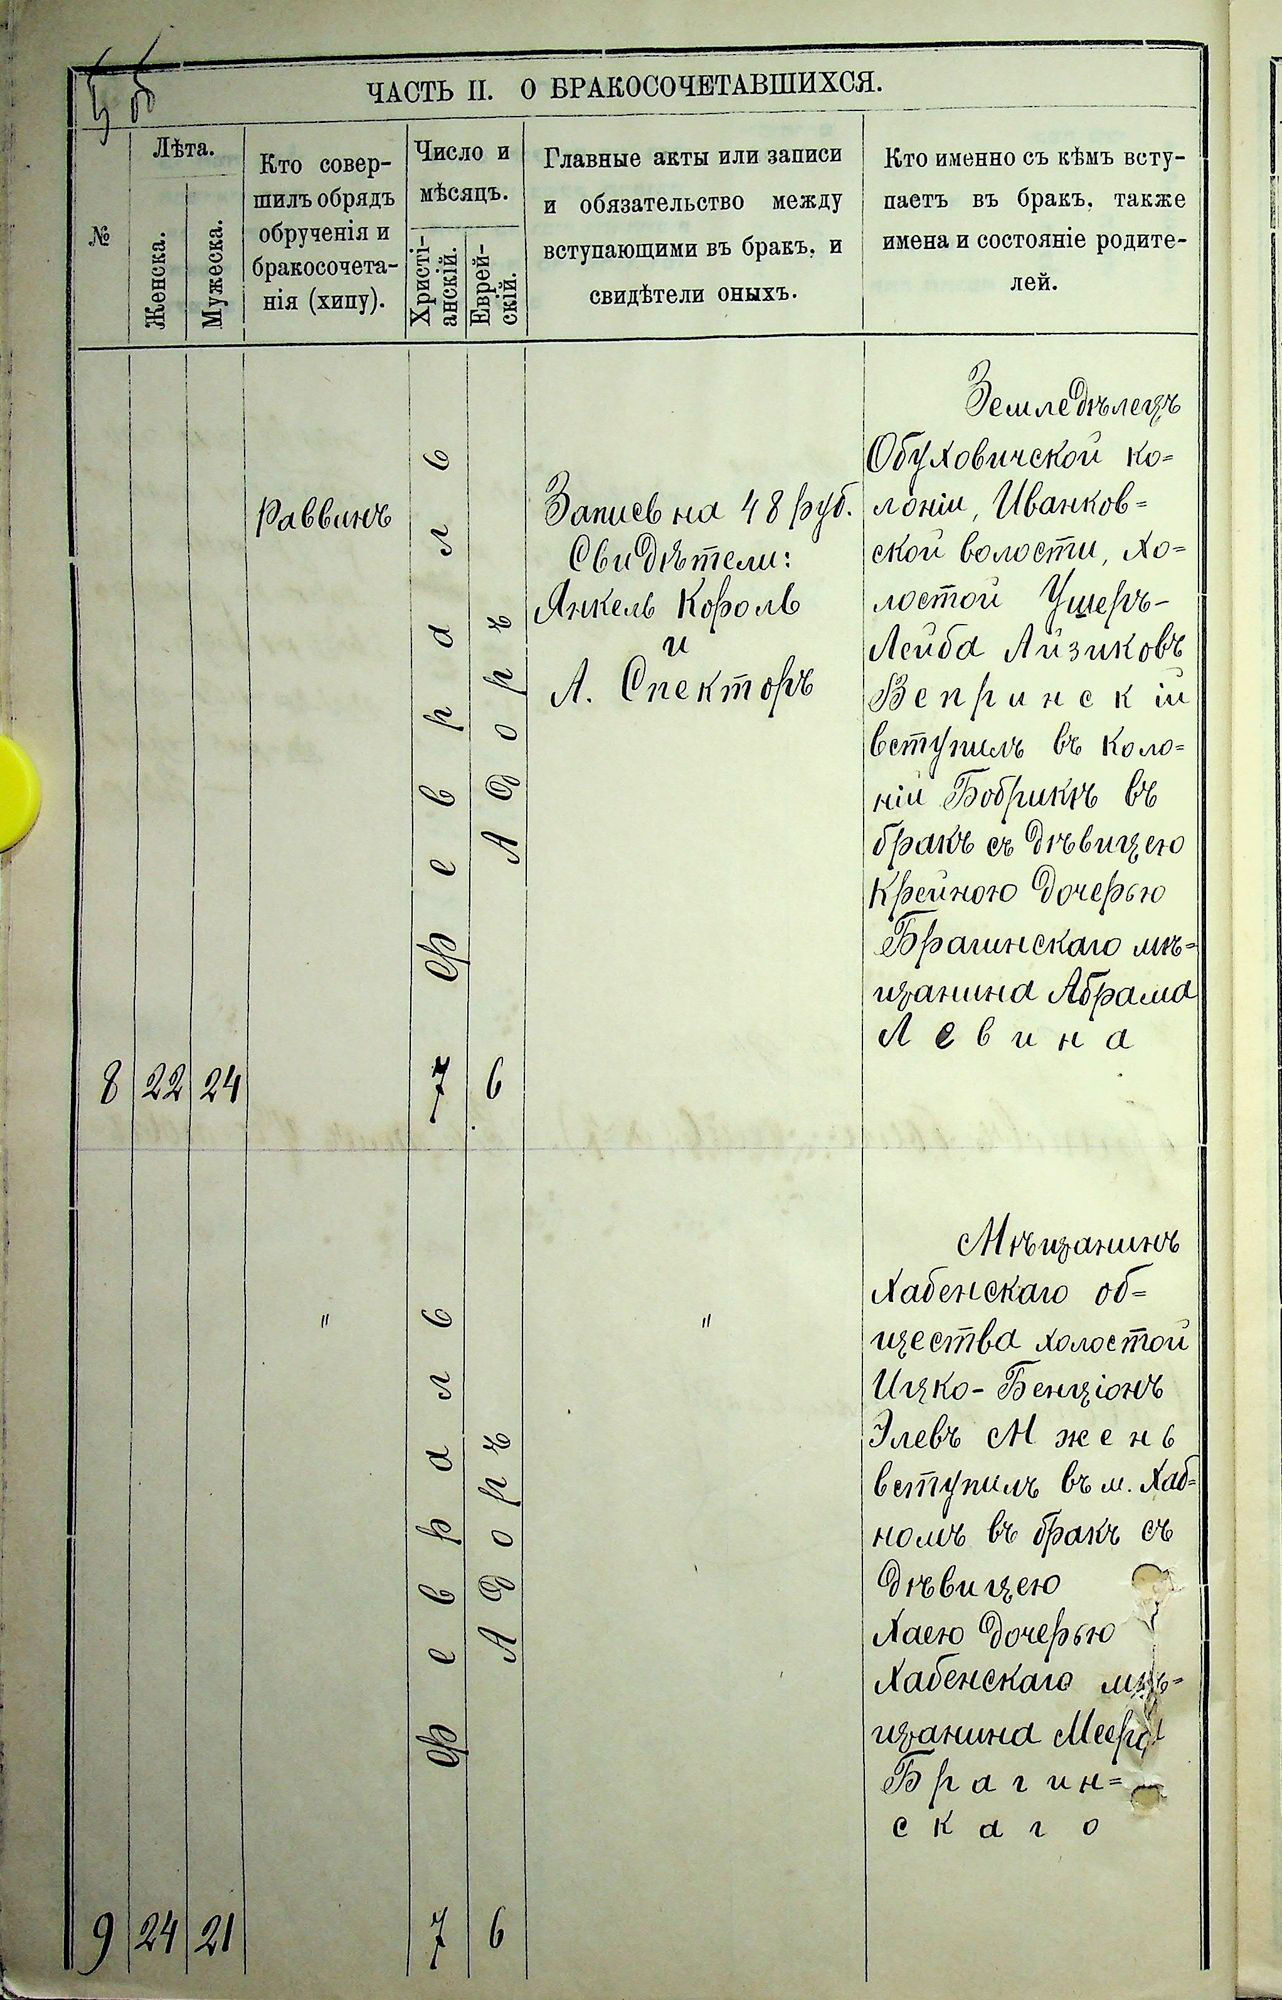 56
ЧАСТЬ II. О БРАКОСОЧЕТАВШИХСЯ.
№
Лѣта.
Женска.
Мужеска.
Кто совер-
шилъ обрядъ
обрученія и
бракосочета-
нія (хипу).
Число и
мѣсяцъ.
Христі-
анскій.
Еврей-
скій.
Главные акты или записи
и обязательство между
вступающими въ бракъ, и
свидѣтели оныхъ.
Кто именно съ кѣмъ всту-
паетъ въ бракъ, также
имена и состояніе родите-
лей.
8
22
24
Раввинъ
7
Февраль
6
Адоръ
Запись на 48 руб.
Свидѣтели:
Янкель Король
и
А. Спекторъ
Земледѣлецъ
Обуховичской ко=
лоніи, Иванков=
ской волости, хо=
лостой Ушеръ-
Лейба Айзиковъ
Вепринскій
вступилъ въ коло=
ніи Бобрикѣ въ
бракъ съ дѣвицею
Крейною дочерью
Брагинскаго мѣ=
щанина Абрама
Левина
9
24
21
"
7
Февраль
6
Адоръ
"
Мѣщанинъ
Хабенскаго об=
щества холостой
Ицко-Бенціонъ
Элевъ Мжень
вступилъ въ м. Хаб=
номъ въ бракъ съ
дѣвицею
Хаею дочерью
Хабенскаго мѣ=
щанина Меера
Брагин=
скаго